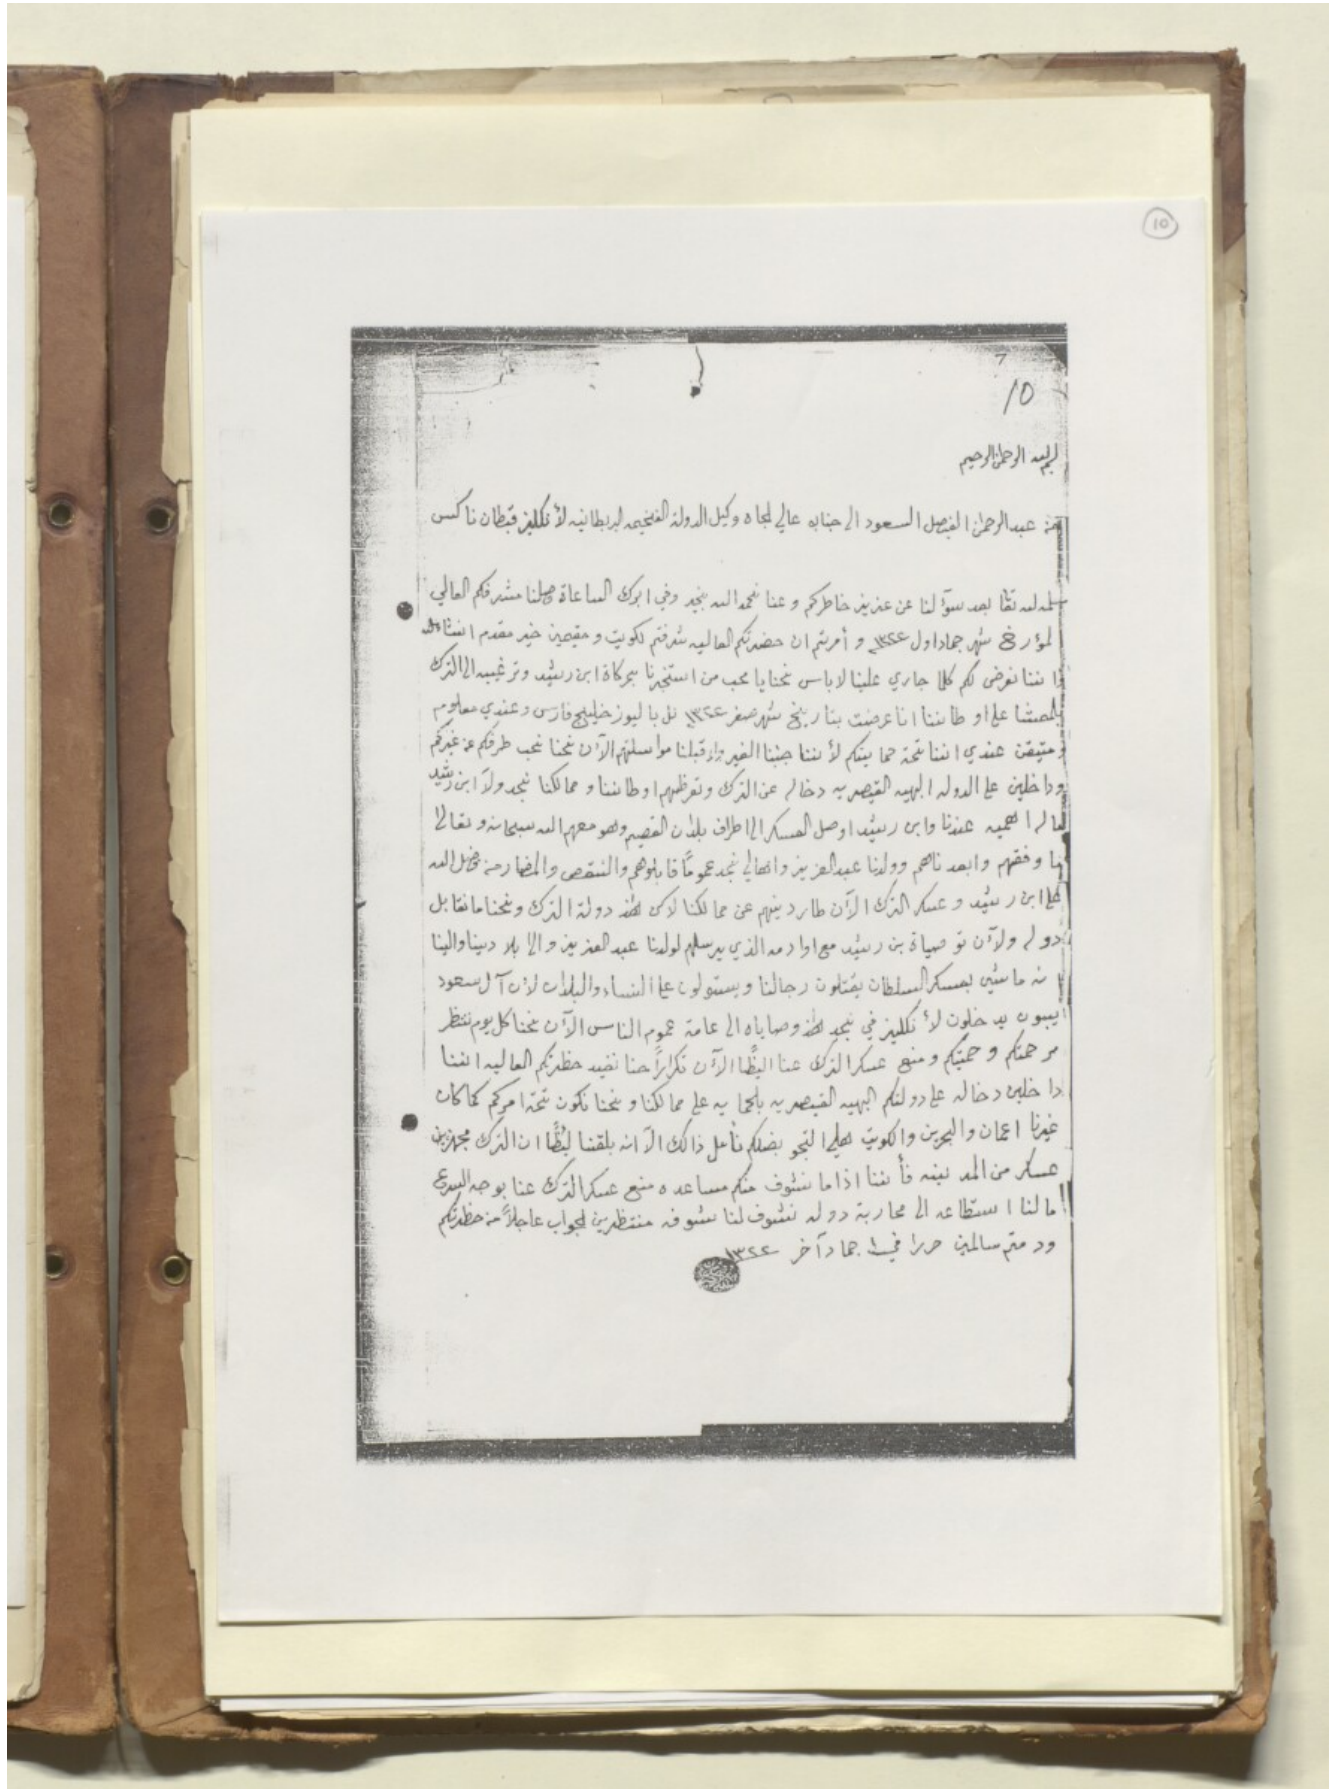 10
7
10
بسم الله الرحمن الرحيم
من عبدالرحمن الفيصل السعود الى جنابه عالي الجاه وكيل الدولة الفخيمه البريطانيه لأنكليز قبطان ناكس
سلمه الله تعا بعد سؤالنا عن عزيز خاطركم وعنا نحمد الله بخير وفي ابرك الساعاة وصلنا مشرفكم العالي
لمؤرخ شهر جماد اول ١٣٢٢ و أمرتم ان حضرتكم العاليه شرفتم لكويت و مقيمين خير مقدم انشاءالله
اننا نعرض لكم كلما جاري علينا لاباس نحنا يا محب من استخبرنا بحركاة ابن رشيد وترغيبه الى الترك
بلمشا على اوطاننا انا عرضت بتاريخ شهر صفر ١٣٢٢ لل باليوز خليج فارس وعندي معلوم
ومتيقن عندي اننا تحة حمايتكم لأننا جنبنا الغير ولا قبلنا مواسلتهم الآن نحنا نحب طرفكم عن غيركم
وداخلين على الدوله البهيه القيصريه دخاله عن الترك وتعرظهم اوطاننا و ممالكنا نجد ولآ ابن رشيد
فماله اهميه عندنا وابن رشيد اوصل العسكر الى اطراف بلدان القصيم وهو معهم الله سبحانه وتعالى
ما وفقهم وابعدناهم وولدنا عبدالعزيز واهالي نجد عموماً قابلوهم والنقص والمضارحه من فضل الله
على ابن رشيد و عسكر الترك الآن طاردينهم عن ممالكنا لاكن لهذ دولة الترك ونحنا مانقابل
دوله ولآن تو صياة بن رشيد مع اوادمه الذي يرسلهم لولدنا عبدالعزيز والى بلاديننا والينا
نه ماشين بعسكر السلطان يقتلون رجالنا ويستولون على النساء والبلدان لان آل سعود
يبون يدخلون لأنكليز في نجد لهذ وصاياه الى عامة عموم الناس الآن نحنا كل يوم ننتظر
مرحمتكم و حميتكم ومنع عسكر الترك عنا ايظًا الآن تكراراً حنا نفيد حظرتكم العاليه اننا
داخلين دخاله على دولتكم البهيه القيصريه بلحمايه على ممالكنا و نحنا نكون تحة امركم كما كان
غيرنا اعمان والبحرين والكويت لهلم التجو بفضلكم نأمل ذالك الآنه بلغنا ايظًا ان الترك مجهزين
عسكر من المدينه فأننا اذا ما نشوف منكم مساعده منع عسكر الترك عنا بوجه السرع
مالنا استطاعه الى محاربة دوله نشوف لنا شوفه منتظرين لجواب عاجلاً من حظرتكم
ودمتم سالمين حررا في جماد آخر ١٣٢٢